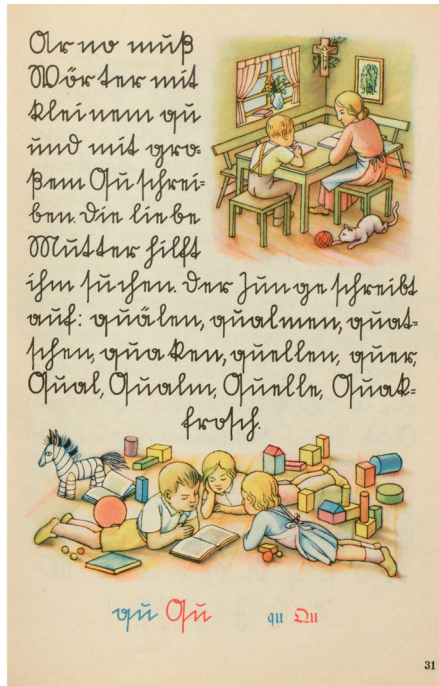 Arno muß
Wörter mit
kleinem qu
und mit gro=
ßem Qu schrei=
ben. Die liebe
Mutter hilft
ihm suchen. Der Junge schreibt
auf: quälen, qualmen, quat=
schen, quaken, quellen, quer,
Qual, Qualm, Quelle, Quak=
frosch.
qu Qu qu Qu
31